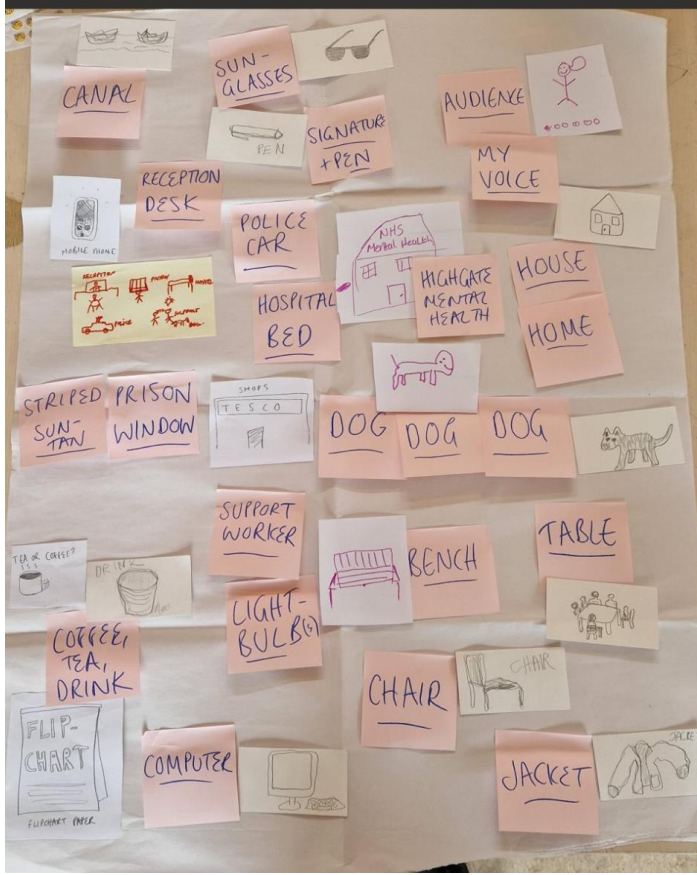 CANAL
SUN-
GLASSES
PEN
SIGNATURE
+ PEN
AUDIENCE
MY
VOICE
MOBILE PHONE
RECEPTION
DESK
POLICE
CAR
NHS
Mental Health
HIGHGATE
MENTAL
HEALTH
HOUSE
HOME
RECEPTION
POLICE
SUPPORT
DOG
HOSPITAL
BED
STRIPED
SUN-
TAN
PRISON
WINDOW
SHOPS
TESCO
DOG
DOG
DOG
SUPPORT
WORKER
BENCH
TABLE
TEA OR COFFEE?
DRINK
LIGHT-
BULB(S)
COFFEE,
TEA,
DRINK
CHAIR
CHAIR
FLIP-
CHART
FLIPCHART PAPER
COMPUTER
JACKET